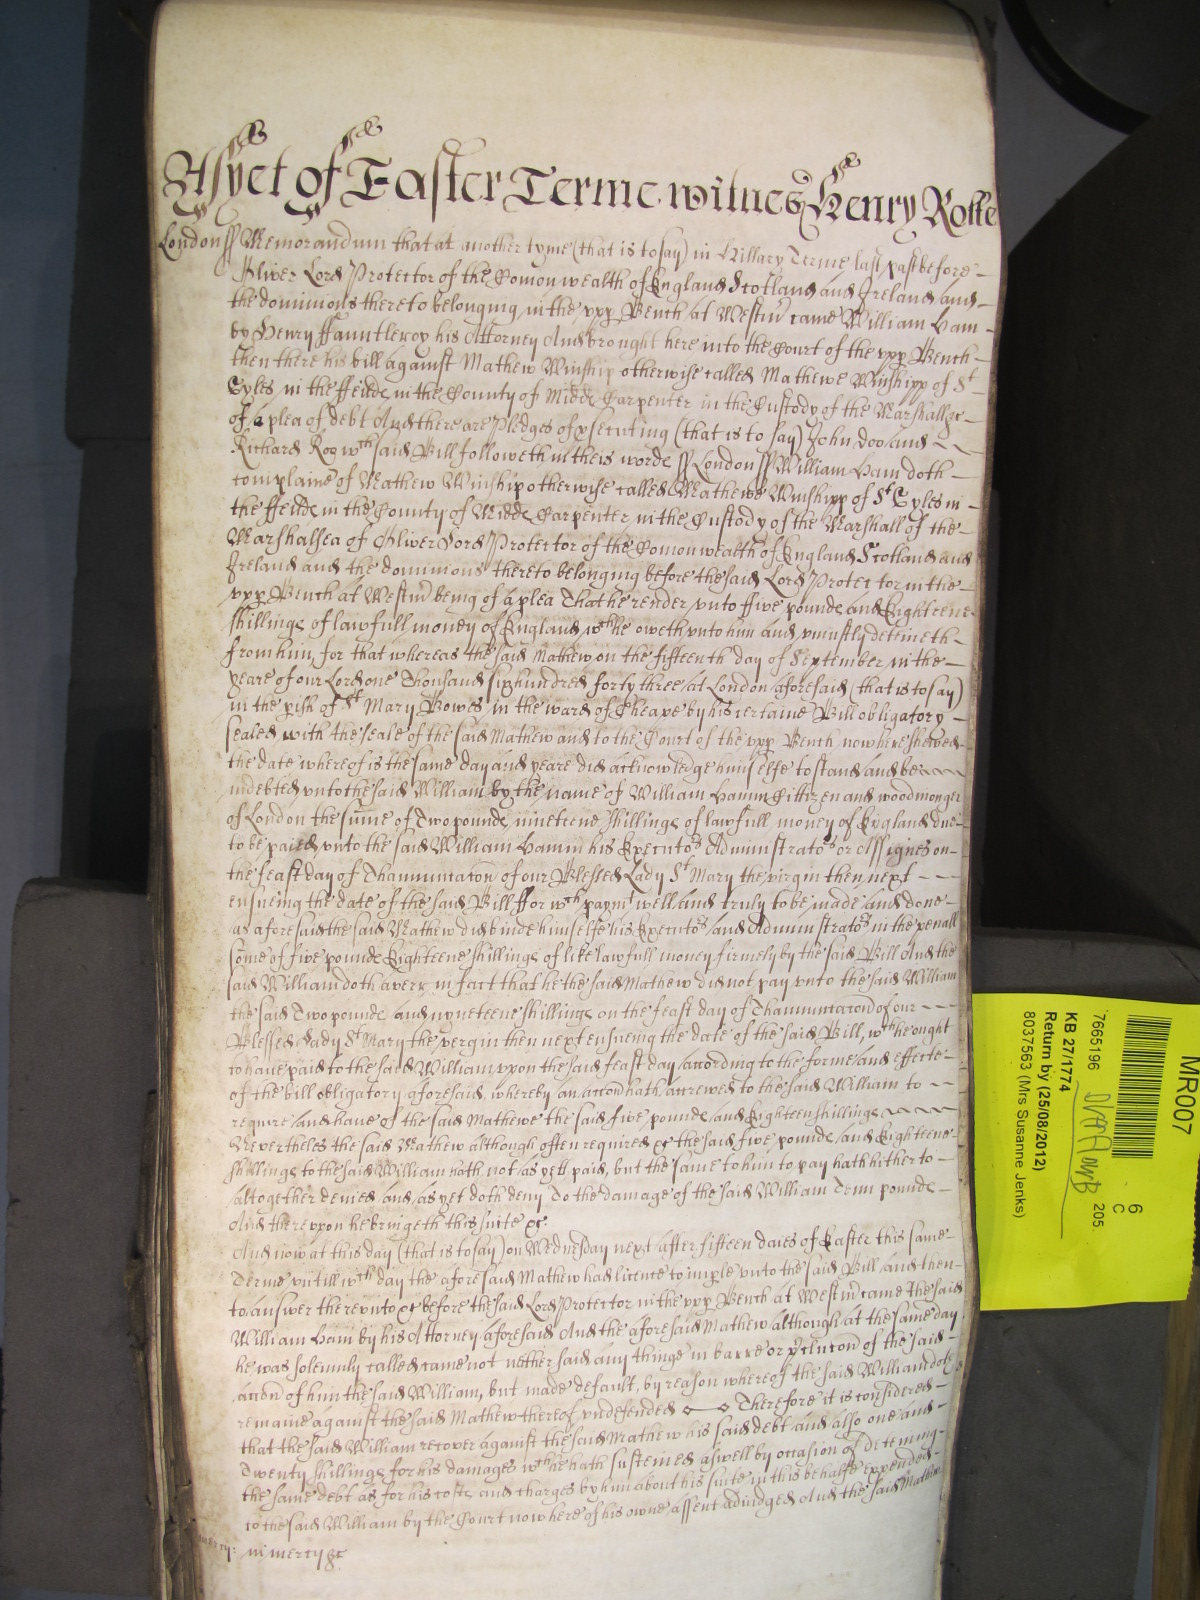 As yet of Easter Terme witnes Henry Rolle
London ss Memorandum that at another tyme (that is to say) in Hillary Terme last past before
Oliver Lord Protector of the Comonwealth of England Scotland and Ireland and
the dominions thereto belonging in the upp Bench at Westm came William Ham
by Henry ffauntleroy his Attorney And brought here into the Court of the upp Bench
then there his bill against Mathew Winship otherwise called Mathewe Winshipp of St
Gyles in the ffeilds in the County of Midd Carpenter in the Custody of the Marshall &c
of a plea of debt And there are pledges of psecuting (that is to say) John Doo and
Richard Roo wch said Bill followeth in theis words ss London ss William Ham doth
complaine of Mathew Winship otherwise called Mathewe Winshipp of St Gyles in
the ffeilds in the County of Midd Carpenter in the Custody of the Marshall of the
Marshalsea of Oliver Lord Protector of the Comonwealth of England Scotland and
Ireland and the dominions thereto belonging before the said Lord Protector in the
upp Bench at Westm being of a plea That he render unto ffive pounds and Eighteene
shillings of lawfull money of England wch he oweth unto him and uniustly deteineth
from him, for that whereas the said Mathew on the fifteenth day of September in the
yeare of our Lord one Thousand six hundred forty three at London aforesaid (that is to say)
in the pish of St Mary Bowes in the ward of Cheape by his certaine Bill obligatory
sealed with the seale of the said Mathew and to the Court of the upp Bench now here shewed
the date whereof is the same day and yeare did acknowledge himselfe to stand and be
indebted unto the said William by the name of William Hamm Cittizen and woodmonger
of London the sume of Two pounds nineteene shillings of lawfull money of England due
to be paied unto the said William Hamm his Executors Administrators or Assignes on
the feast day of Thannunciacon of our Blessed Lady St Mary the virgin then next
ensueing the date of the said Bill ffor wch paymt well and truly to be made and done
as aforesaid the said Mathew did binde himselfe his Executors and Administrators in the penall
some of five pounds Eighteene shillings of like lawfull money firmely by the said Bill And the
said William doth averr in fact that he the said Mathew did not pay unto the said William
the said Two pounds and nyneteene shillings on the feast day of Thannunciacon of our
Blessed Lady St Mary the vergin then next ensueing the date of the said Bill, wch he ought
to have paid to the said William upon the said feast day according to the forme and effecte
of the bill obligatory aforesaid, whereby an accon hath accrewed to the said William to
require and have of the said Mathewe the said five pounds and Eighteen shillings
Neverthelesse the said Mathew although often required &c the said five pounds and Eighteene
shillings to the said William hath not as yett paid, but the same to him to pay hath hitherto
altogether denied and as yet doth deny To the damage of the said William Tenn pounds
And thereupon he bringeth this suite &c
And now at this day (that is to say) on Wednesday next after fifteen daies of Easter this same
Terme untill wch day the aforesaid Mathew had licence to imple unto the said Bill and then
to answer thereunto &c before the said Lord Protector in the upp Bench at Westm came the said
William Ham by his Attorney aforesaid And the aforesaid Mathew although at the same day
he was solemnly called came not neither said any thinge in barre or pclucon of the said
accon of him the said William, but made default, by reason whereof the said William doth
remaine against the said Mathew thereof undefended Therefore it is considered
that the said William recover against the said Mathew his said debt and also one and
Twenty shillings for his damages wch he hath susteined aswell by occasion of deteining
the same debt as for his costs and charges by him about his suite in this behalfe expended
to the said William by the Court now here of his owne assent adiudged And the said Mathew
mercy: in mercy &c
MR007
6
C
205
7665196
KB 27/1774
Return by (25/08/2012)
8037563 (Mrs Susanne Jenks)